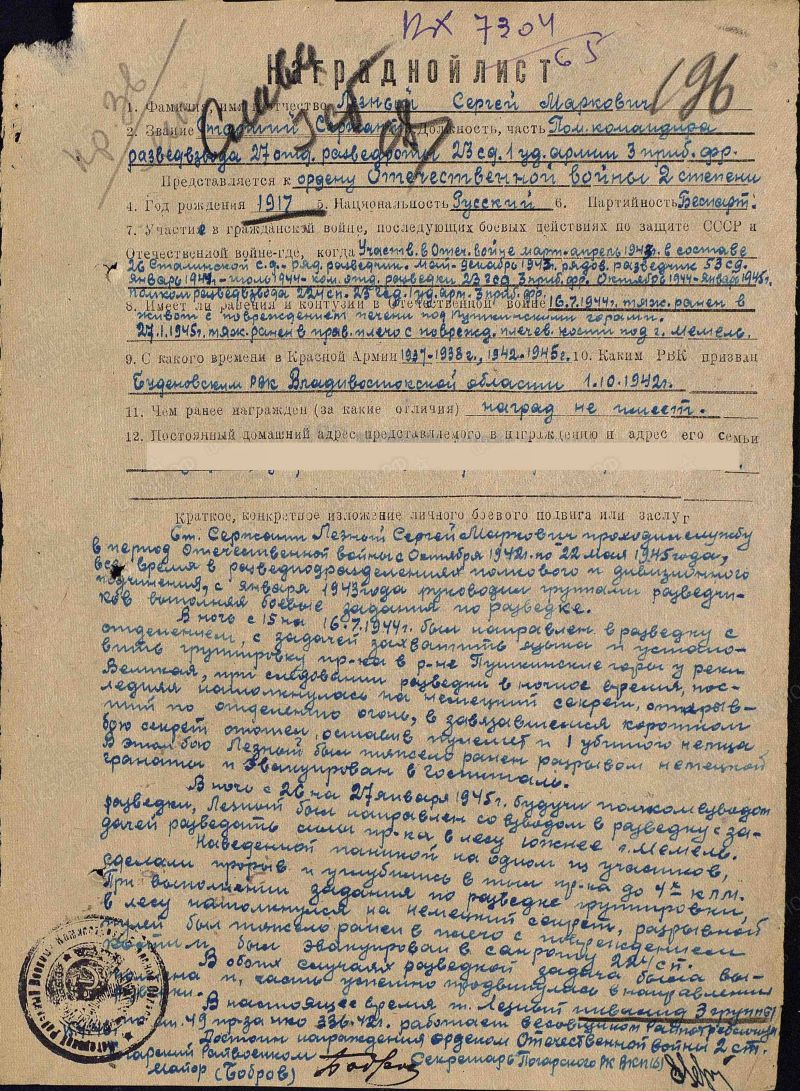 вх 7304
65
Наградной лист
196
1. Фамилия, имя и отчество Лезный Сергей Маркович
2. Звание Старший Сержант Должность, часть Пом. командира
разведвзвода 27 отд. разведроты 23 сд. 1 уд. армии 3 приб. фр.
Представляется к ордену Отечественной войны 2 степени
4. Год рождения 1917 5. Национальность Русский 6. Партийность Беспарт.
7. Участие в гражданской войне, последующих боевых действиях по защите СССР и
Отечественной войне-где, когда Участв. в Отеч. войне март-апрель 1943г. в составе
26 Сталинской с.д. - ряд. разведчик. май-декабрь 1943г. рядов. разведчик 53 сд.
январь 1944 - июль 1944 - ком. отд. разведки 23 сд 3 приб. фр. Октябрь 1944 - январь 1945г.
помкомразведвзвода 224 сп. 23 сд. 1 уд. арм. 3 приб. фр.
8. Имеет ли ранения и контузии в Отечественной войне 16.7.1944г. тяж. ранен в
живот с повреждением печени под Пушкинскими горами.
27.1.1945г. тяж. ранен в прав. плечо с поврежд. плечев. кости под г. Мемель.
9. С какого времени в Красной Армии 1937-1938 г., 1942-1945г. 10. Каким РВК призван
Буденовским РВК Владивостокской области 1.10.1942г.
11. Чем ранее награжден (за какие отличия) наград не имеет.
12. Постоянный домашний адрес представляемого к награждению и адрес его семьи
Краткое, конкретное изложение личного боевого подвига или заслуг
Ст. Сержант Лезный Сергей Маркович проходил службу
в период Отечественной войны с Октября 1942г. по 22 мая 1945 года,
все время в разведподразделениях полкового и дивизионного
подчинения, с января 1943 года руководил группами разведчи-
ков выполняя боевые задания по разведке.
В ночь с 15 на 16.7.1944г. был направлен в разведку с
отделением, с задачей захватить языка и устано-
вить группировку пр-ка в р-не Пушкинские горы у реки
Великая, при следовании разведки в ночное время, пос-
ледняя натолкнулась на немецкий секрет, открыв-
ший по отделению огонь, в завязавшемся коротком
бою секрет отошел, оставив пулемет и 1 убитого немца
В этом бою Лезный был тяжело ранен разрывом немецкой
гранаты и эвакуирован в госпиталь.
В ночь с 26 на 27 января 1945г. будучи помкомвзводом
разведки, Лезный был направлен со взводом в разведку с за-
дачей разведать силы пр-ка в лесу южнее г. Мемель.
Наведенной паникой на одном из участков,
сделали прорыв и углубились в тыл пр-ка до 4х клм.
При выполнении задания по разведке группировки,
в лесу натолкнулся на немецкий секрет, разрывной
пулей был тяжело ранен в плечо с повреждением
кости и был эвакуирован в санроту 224 сп.
В обоих случаях разведкой задача была вы-
полнена и часть успешно продвинулась в направлении
В настоящее время т. Лезный инвалид 3 группы
49 пр-за НКО 336-42г. работает весовщиком Райпотребсоюза
Достоин награждения орденом Отечественной войны 2 ст.
Погарский Райвоенком
майор (Бобров)
Секретарь Погарского РК ВКП(б)